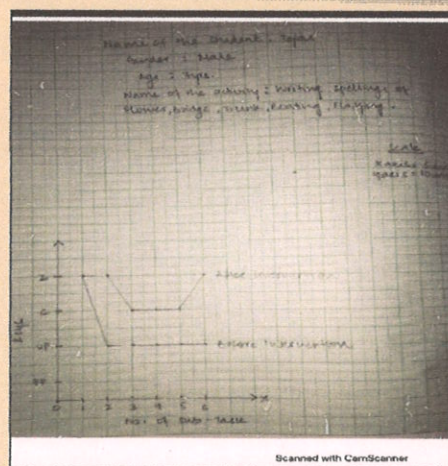 Name of the student :
Gender : Male
Age :
Name of the activity : Writing spellings of
Flower, Bridge, Drink, Reading, Playing.
Scale
After Intervention
Before Intervention
I
VP
0 1 2 3 4 5 6 X
No. of Sub-Task
Scanned with CamScanner